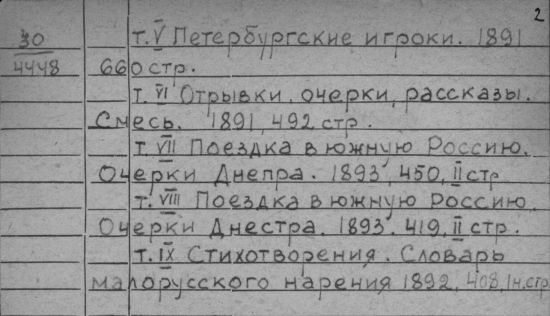 2
30 т. V Петербургские игроки. 1891
4448 660 стр.
т. VI Отрывки. очерки, рассказы.
Смесь. 1891, 492 стр.
т. VII Поездка в южную Россию.
Очерки Днепра. 1893, 450, II стр
т. VIII Поездка в южную Россию.
Очерки Днестра. 1893. 419, II стр.
т. IX Стихотворения. Словарь
малорусского нарения 1892, 408, 1н.стр